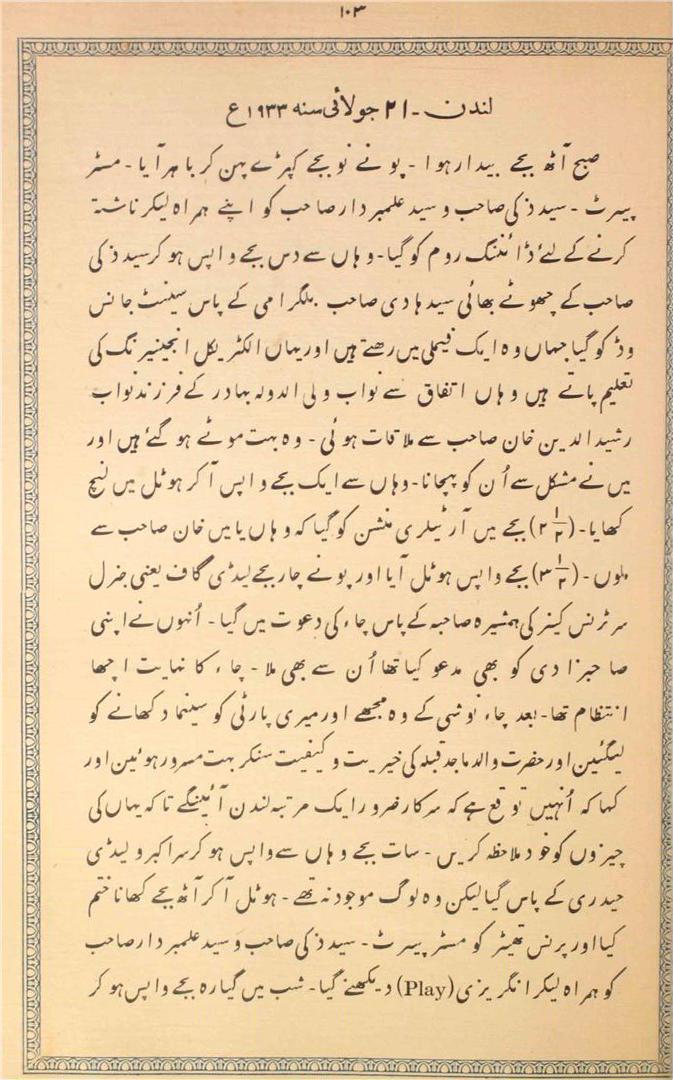 ۱۰۳
لندن - ۲۱ جولائی سنه ۱۹۳۳ ع
صبح آٹھ بجے بیدار ہوا - پونے نو بجے کپڑے پہن کر باہر آیا - مسٹر
پیرٹ - سید ذکی صاحب و سید علمبردار صاحب کو اپنے ہمراہ لیکر ناشتہ
کرنے کے لئے ڈائننگ روم کو گیا - وہاں سے دس بجے واپس ہو کر سید ذکی
صاحب کے چھوٹے بھائی سید ہادی صاحب بلگرامی کے پاس سینٹ جانس
وڈ کو گیا جہاں وہ ایک فیملی میں رہتے ہیں اور یہاں الکٹریکل انجینیرنگ کی
تعلیم پاتے ہیں وہاں اتفاق سے نواب ولی الدولہ بہادر کے فرزند نواب
رشید الدین خان صاحب سے ملاقات ہوئی - وہ بہت موٹے ہو گئے ہیں اور
میں نے مشکل سے اُن کو پہچانا - وہاں سے ایک بجے واپس آ کر ہوٹل میں لنچ
کھایا - (۲ ۱/۲) بجے میں آرٹیلری منشن کو گیا کہ وہاں یامین خان صاحب سے
ملوں - (۳ ۱/۲) بجے واپس ہوٹل آیا اور پونے چار بجے لیڈی گاف یعنی جنرل
سر ٹرنس کینر کی ہمشیرہ صاحبہ کے پاس چاء کی دعوت میں گیا - اُنہوں نے اپنی
صاحبزادی کو بھی مدعو کیا تھا اُن سے بھی ملا - چاء کا نہایت اچھا
انتظام تھا - بعد چاء نوشی کے وہ مجھے اور میری پارٹی کو سینما دکھانے کو
لیگئیں اور حضرت والد ماجد قبلہ کی خیریت و کیفیت سنکر بہت مسرور ہوئیں اور
کہا کہ اُنہیں توقع ہے کہ سرکار ضرور ایک مرتبہ لندن آئینگے تاکہ یہاں کی
چیزوں کو خود ملاحظہ کریں - سات بجے وہاں سے واپس ہو کر سر اکبر و لیڈی
حیدری کے پاس گیا لیکن وہ لوگ موجود نہ تھے - ہوٹل آ کر آٹھ بجے کھانا ختم
کیا اور پرنس تھیٹر کو مسٹر پیرٹ - سید ذکی صاحب و سید علمبردار صاحب
کو ہمراہ لیکر انگریزی (Play) دیکھنے گیا - شب میں گیارہ بجے واپس ہو کر